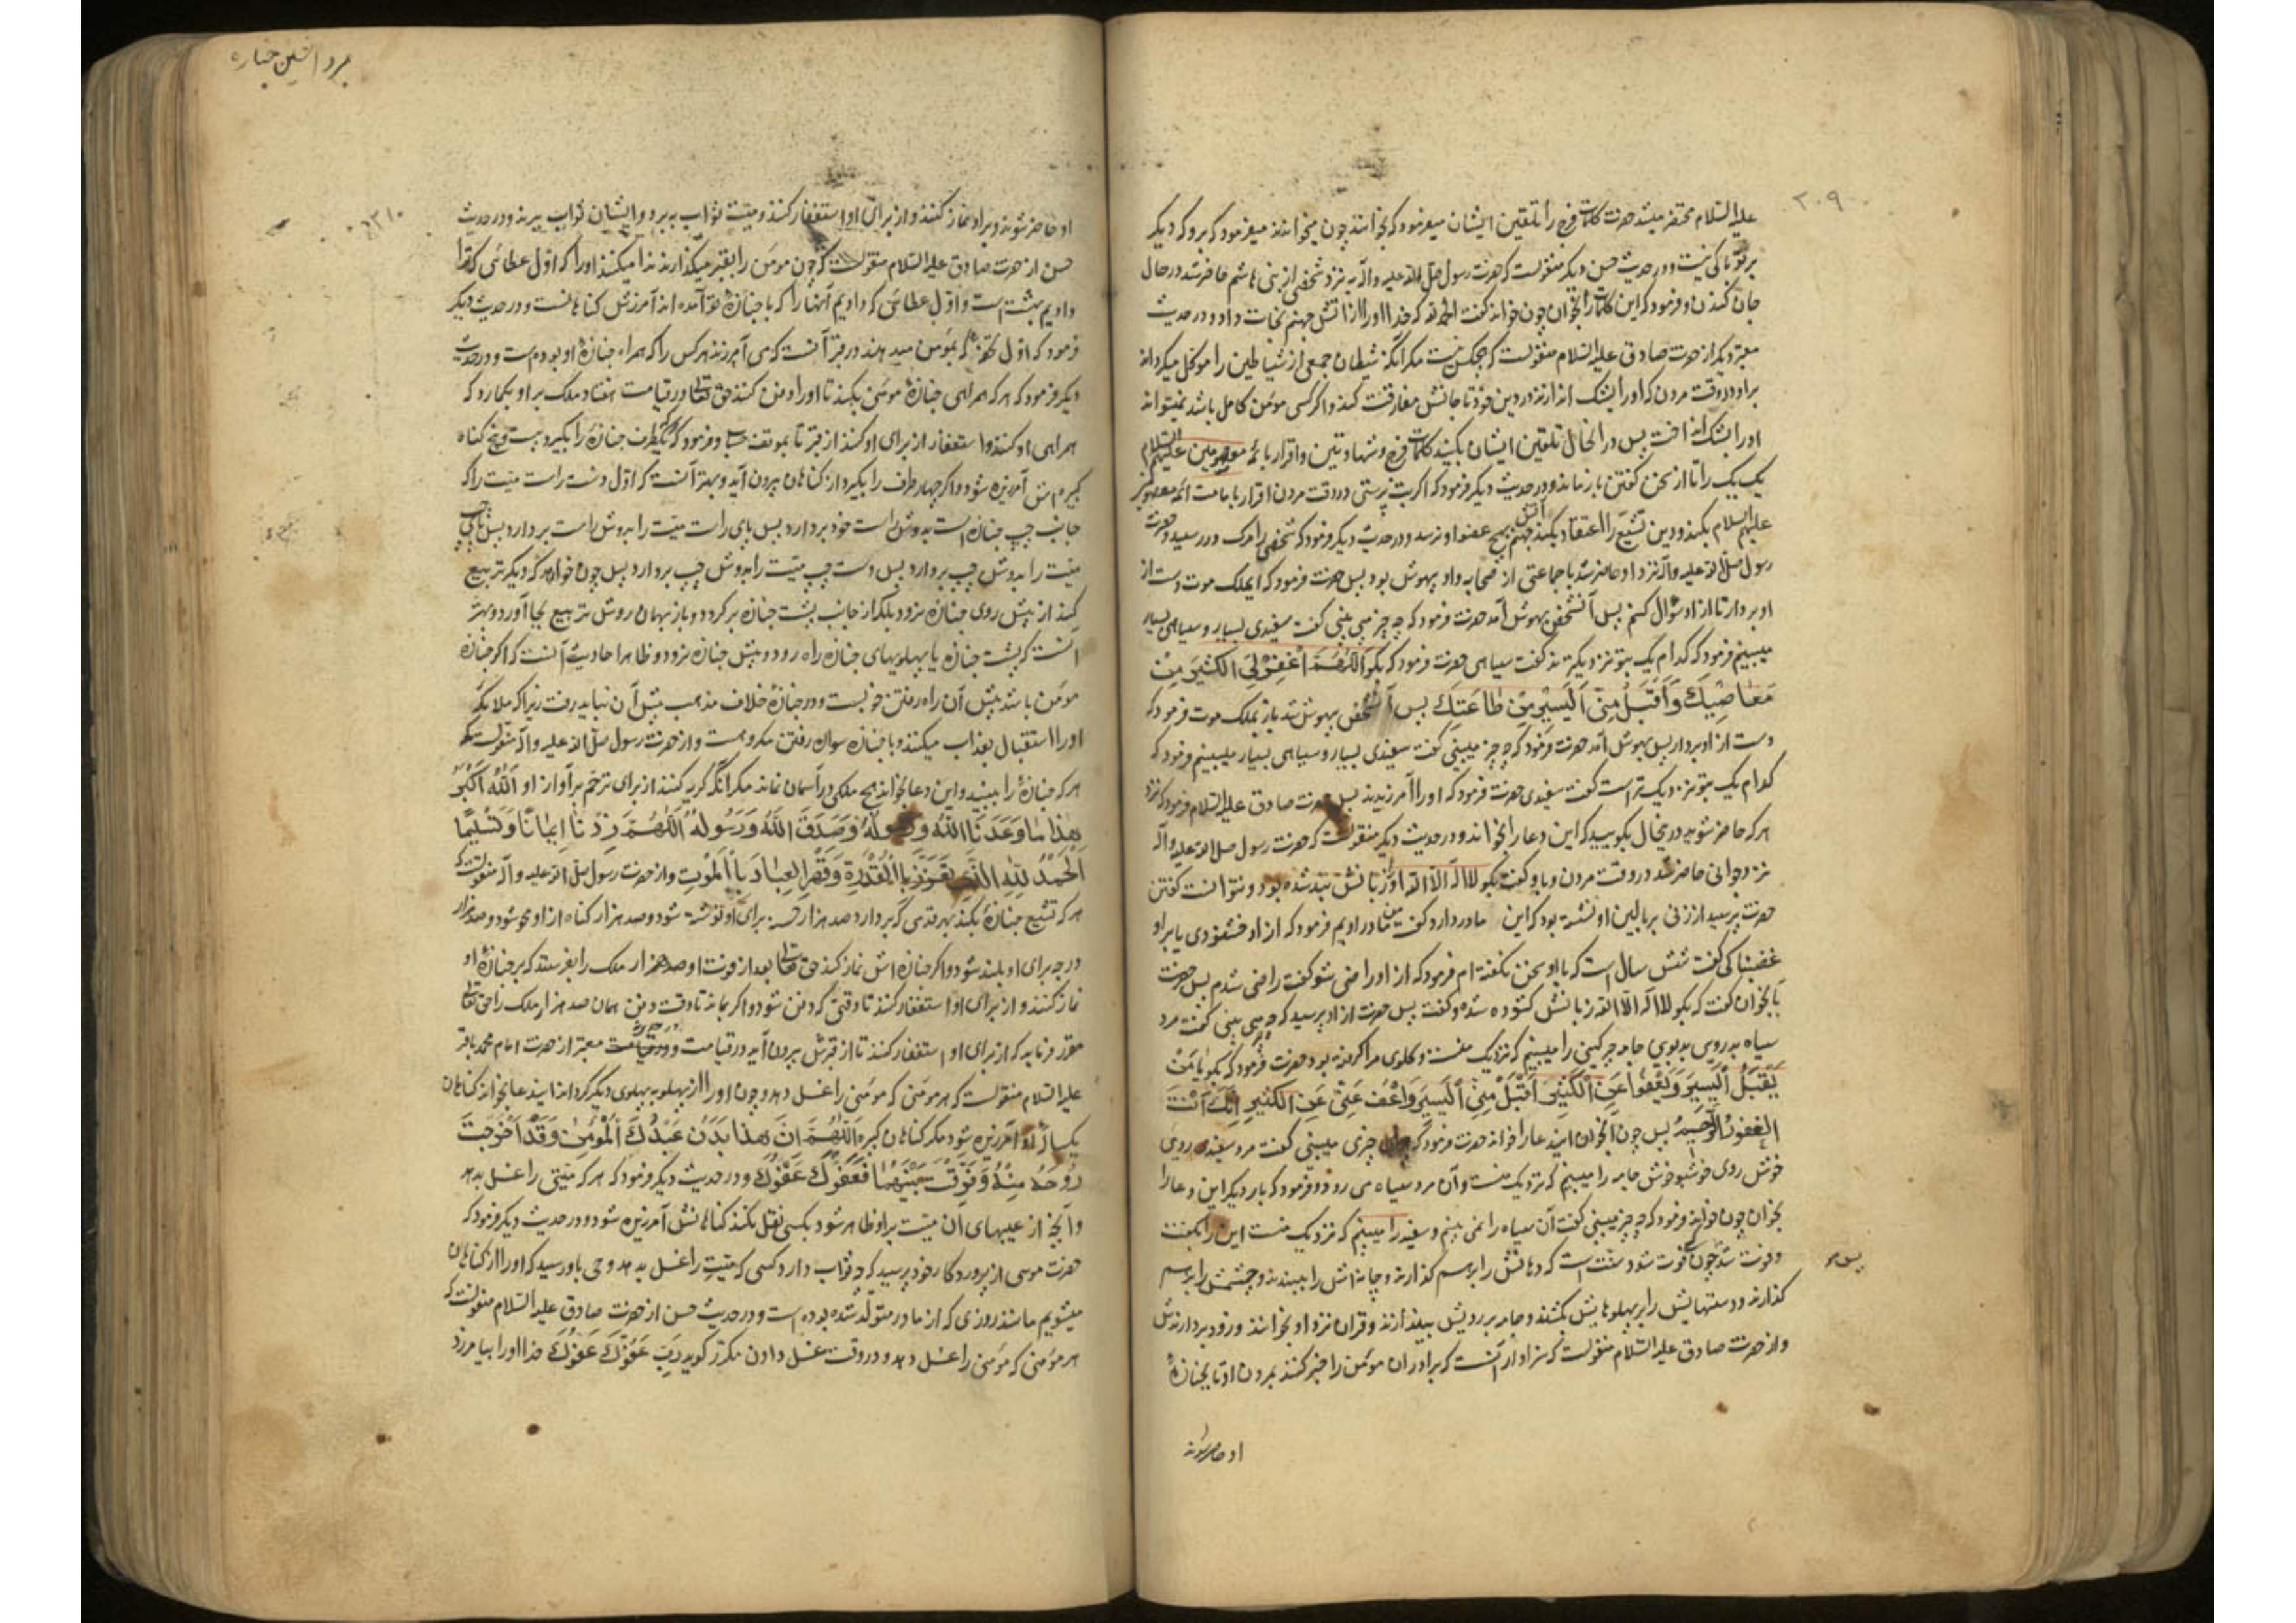 ۲۰۹
علیه السلام محتضر میشد حضرت کلمات فرج را تلقین ایشان میفرمود که بخوانند چون میخواندند میفرمود که برو که دیگر
بر تو باکی نیست و در حدیث حسن دیگر منقولست که حضرت رسول صلی الله علیه و آله به نزد شخصی از بنی هاشم حاضر شد در حال
جان کندن و فرمود که این کلمات را بخوان چون خواند گفت الحمد لله که خدا او را از آتش جهنم نجات داد و در حدیث
معتبر دیگر از حضرت صادق علیه السلام منقولست که هیچکس نیست مگر آنکه شیطان جمعی از شیاطین را موکل میگرداند
بر او در وقت مردن که او را بشک اندازند در دین خود تا جانش مفارقت کند و اگر کسی مومن کامل باشد نمیتواند
او را بشک انداخت پس در آنحال تلقین ایشان بکنید کلمات فرج و شهادتین و اقرار بائمه معصومین علیهم السلام
یک یک را تا از سخن گفتن باز ماند و در حدیث دیگر فرمود که اگر بت پرستی در وقت مردن اقرار بامامت ائمه معصومین
علیهم السلام بکند و دین تشیع را اعتقاد بکند آتش جهنم بهیچ عضو او نرسد و در حدیث دیگر فرمود که شخصی را مرک در رسید و حضرت
رسول صلی الله علیه و آله نزد او حاضر شد با جماعتی از صحابه و او بیهوش بود پس حضرت فرمود که ای ملک موت دست از
او بردار تا از او سؤال کنم پس آنشخص بهوش آمد حضرت فرمود که چه چیز می بینی گفت سفیدی بسیار و سیاهی بسیار
میبینم فرمود که کدام یک بتو نزدیکترند گفت سیاهی حضرت فرمود که بگو اَللّٰهُمَّ اغْفِرْ لِیَ الْکَثِیرَ مِنْ
مَعَاصِیكَ وَ اقْبَلْ مِنِّی الْیَسِیرَ مِنْ طَاعَتِكَ پس آنشخص بیهوش شد باز بملک موت فرمود که
دست از او بردار پس بهوش آمد حضرت فرمود که چه چیز میبینی گفت سفیدی بسیار و سیاهی بسیار میبینم فرمود که
کدام یک بتو نزدیک تر است گفت سفیدی حضرت فرمود که او را آمرزیدند پس حضرت صادق علیه السلام فرمود که نزد
هر که حاضر شوید در ینحال بگویید که این دعا را بخواند و در حدیث دیگر منقولست که حضرت رسول صلی الله علیه و آله
نزد جوانی حاضر شد در وقت مردن و باو گفت بگو لا اله الا الله او زبانش بند شده بود و نتوانست گفتن
حضرت پرسید از زنی بر بالین او نشسته بود که این مادر دارد گفت من مادر اویم فرمود که از او خشنودی یا بر او
غضبناکی گفت شش سال است که با او سخن نگفته ام فرمود که از او راضی شو گفت راضی شدم پس حضرت
بآنجوان گفت که بگو لا اله الا الله زبانش گشوده شده و گفت پس حضرت از او پرسید که چه می بینی گفت مرد
سیاه بد روی بد بوی جامه چرکینی را میبینم که نزدیک منست و گلوی مرا گرفته بود حضرت فرمود که بگو یَا مَنْ
یَقْبَلُ الْیَسِیرَ وَ یَعْفُو عَنِ الْکَثِیرِ اقْبَلْ مِنِّی الْیَسِیرَ وَ اعْفُ عَنِّی عَنِ الْکَثِیرِ اِنَّكَ اَنْتَ
الْغَفُورُ الرَّحِیمُ پس چون آنجوان ایندعا را خواند حضرت فرمود که چیزی میبینی گفت مرد سفید روی
خوش روی خوشبو خوش جامه را میبینم که نزدیک منست و آن مرد سیاه می رود و فرمود که بار دیگر این دعا را
بخوان چون خواند فرمود که چه چیز میبینی گفت آن سیاه را نمی بینم و سفید را میبینم که نزدیک منست این را بگفت
و فوت شد چون فوت شود سنت است که دهانش را بر هم گذارند و چانه اش را ببندند و چشمش را بر هم
گذارند و دستهایش را بر پهلوهایش کشند و جامه بر رویش بیندازند و قران نزد او بخوانند و زود بردارندش
و از حضرت صادق علیه السلام منقولست که سزاوار آنست که برادران مومن را خبر کنند بمردن او تا بجنازهٔ
او حاضر شوند
۲۱۰
او حاضر شوند و بر او نماز کنند و از برای او استغفار کنند و میت ثواب ببرد و ایشان ثواب ببرند و در حدیث
حسن از حضرت صادق علیه السلام منقولست که چون مومن را بقبر میگذارند ندا میکنند او را که اول عطائی که ترا
دادیم بهشت است و اول عطائی که دادیم آنها را که با جنازهٔ تو آمده اند آمرزش گناهانست و در حدیث دیگر
فرمود که اول تحفهٔ که بمومن میدهند در قبر آنست که می آمرزند هر کس را که همراه جنازهٔ او بوده است و در حدیث
دیگر فرمود که هر که همراهی جنازهٔ مومنی بکند تا او را دفن کنند حق تعالی در قیامت هفتاد ملک بر او بگمارد که
همراهی او کنند و استغفار از برای او کنند از قبر تا بموقف حساب و فرمود که هر که یکطرف جنازه را بگیرد بیست و پنج گناه
کبیره اش آمرزیده شود و اگر چهار طرف را بگیرد از گناهان بیرون آید و بهتر آنست که اول دست راست میت را که
جانب چپ جنازه است به دوش راست خود بردارد پس پای راست میت را بدوش راست بردارد پس پای چپ
میت را بدوش چپ بردارد پس دست چپ میت را بدوش چپ بردارد پس چون خواهد که دیگر تربیع
کند از پیش روی جنازه نرود بلکه از جانب پشت جنازه بر گردد و باز بهمان روش تربیع بجا آورد و بهتر
آنست که پشت جنازه یا پهلویهای جنازه راه رود و پیش جنازه نرود و ظاهر احادیث آنست که اگر جنازهٔ
مومن باشد پیش آن راه رفتن خوبست و در جنازهٔ خلاف مذهب پیش آن نباید رفت زیرا که ملائکه
او را استقبال بعذاب میکنند و با جنازه سواره رفتن مکروهست و از حضرت رسول صلی الله علیه و آله منقولست که
هر که جنازهٔ را ببیند و این دعا بخواند هیچ ملکی در آسمان نماند مگر آنکه گریه کنند از برای ترحم بر آواز او اَللّٰهُ اَکْبَرُ
هٰذَا مَا وَعَدَنَا اللّٰهُ وَ رَسُولُهُ وَ صَدَقَ اللّٰهُ وَ رَسُولُهُ اَللّٰهُمَّ زِدْنَا اِیمَانًا وَ تَسْلِیمًا
اَلْحَمْدُ لِلّٰهِ الَّذِی تَعَزَّزَ بِالْقُدْرَةِ وَ قَهَرَ الْعِبَادَ بِالْمَوْتِ و از حضرت رسول صلی الله علیه و آله منقولست که
هر که تشییع جنازهٔ بکند بهر قدمی که بردارد صد هزار حسنه برای او نوشته شود و صد هزار گناه از او محو شود و صد هزار
درجه برای او بلند شود و اگر جنازه اش نماز کند حق تعالی بعد از فوت او صد هزار ملک را بفرستد که بر جنازهٔ او
نماز کنند و از برای او استغفار کنند تا وقتی که دفن شود و اگر بماند تا وقت دفن همان صد هزار ملک را حق تعالی
مقرر فرماید که از برای او استغفار کنند تا از قبرش بیرون آید در قیامت و در حدیث معتبر از حضرت امام محمد باقر
علیه السلام منقولست که هر مومنی که مومنی را غسل دهد و چون او را از پهلو به پهلوی دیگر گرداند ایندعا بخواند گناهان
یکسالهٔ او آمرزیده شود مگر گناهان کبیره اَللّٰهُمَّ اِنَّ هٰذَا بَدَنُ عَبْدِكَ الْمُؤْمِنِ وَ قَدْ اَخْرَجْتَ
رُوحَهُ مِنْهُ وَ فَرَّقْتَ بَیْنَهُمَا فَعَفْوَكَ عَفْوَكَ و در حدیث دیگر فرمود که هر که میتی را غسل بدهد
و آنچه از عیبهای آن میت بر او ظاهر شود بکسی نقل نکند گناهانش آمرزیده شود و در حدیث دیگر فرمود که
حضرت موسی از پروردگار خود پرسید که چه ثواب دارد کسی که میت را غسل بدهد وحی باو رسید که او را از گناهان
میشویم مانند روزی که از مادر متولد شده بوده است و در حدیث حسن از حضرت صادق علیه السلام منقولست که
هر مومنی که مومنی را غسل دهد و در وقت غسل دادن مکرر گوید رَبِّ عَفْوَكَ عَفْوَكَ خدا او را بیامرزد